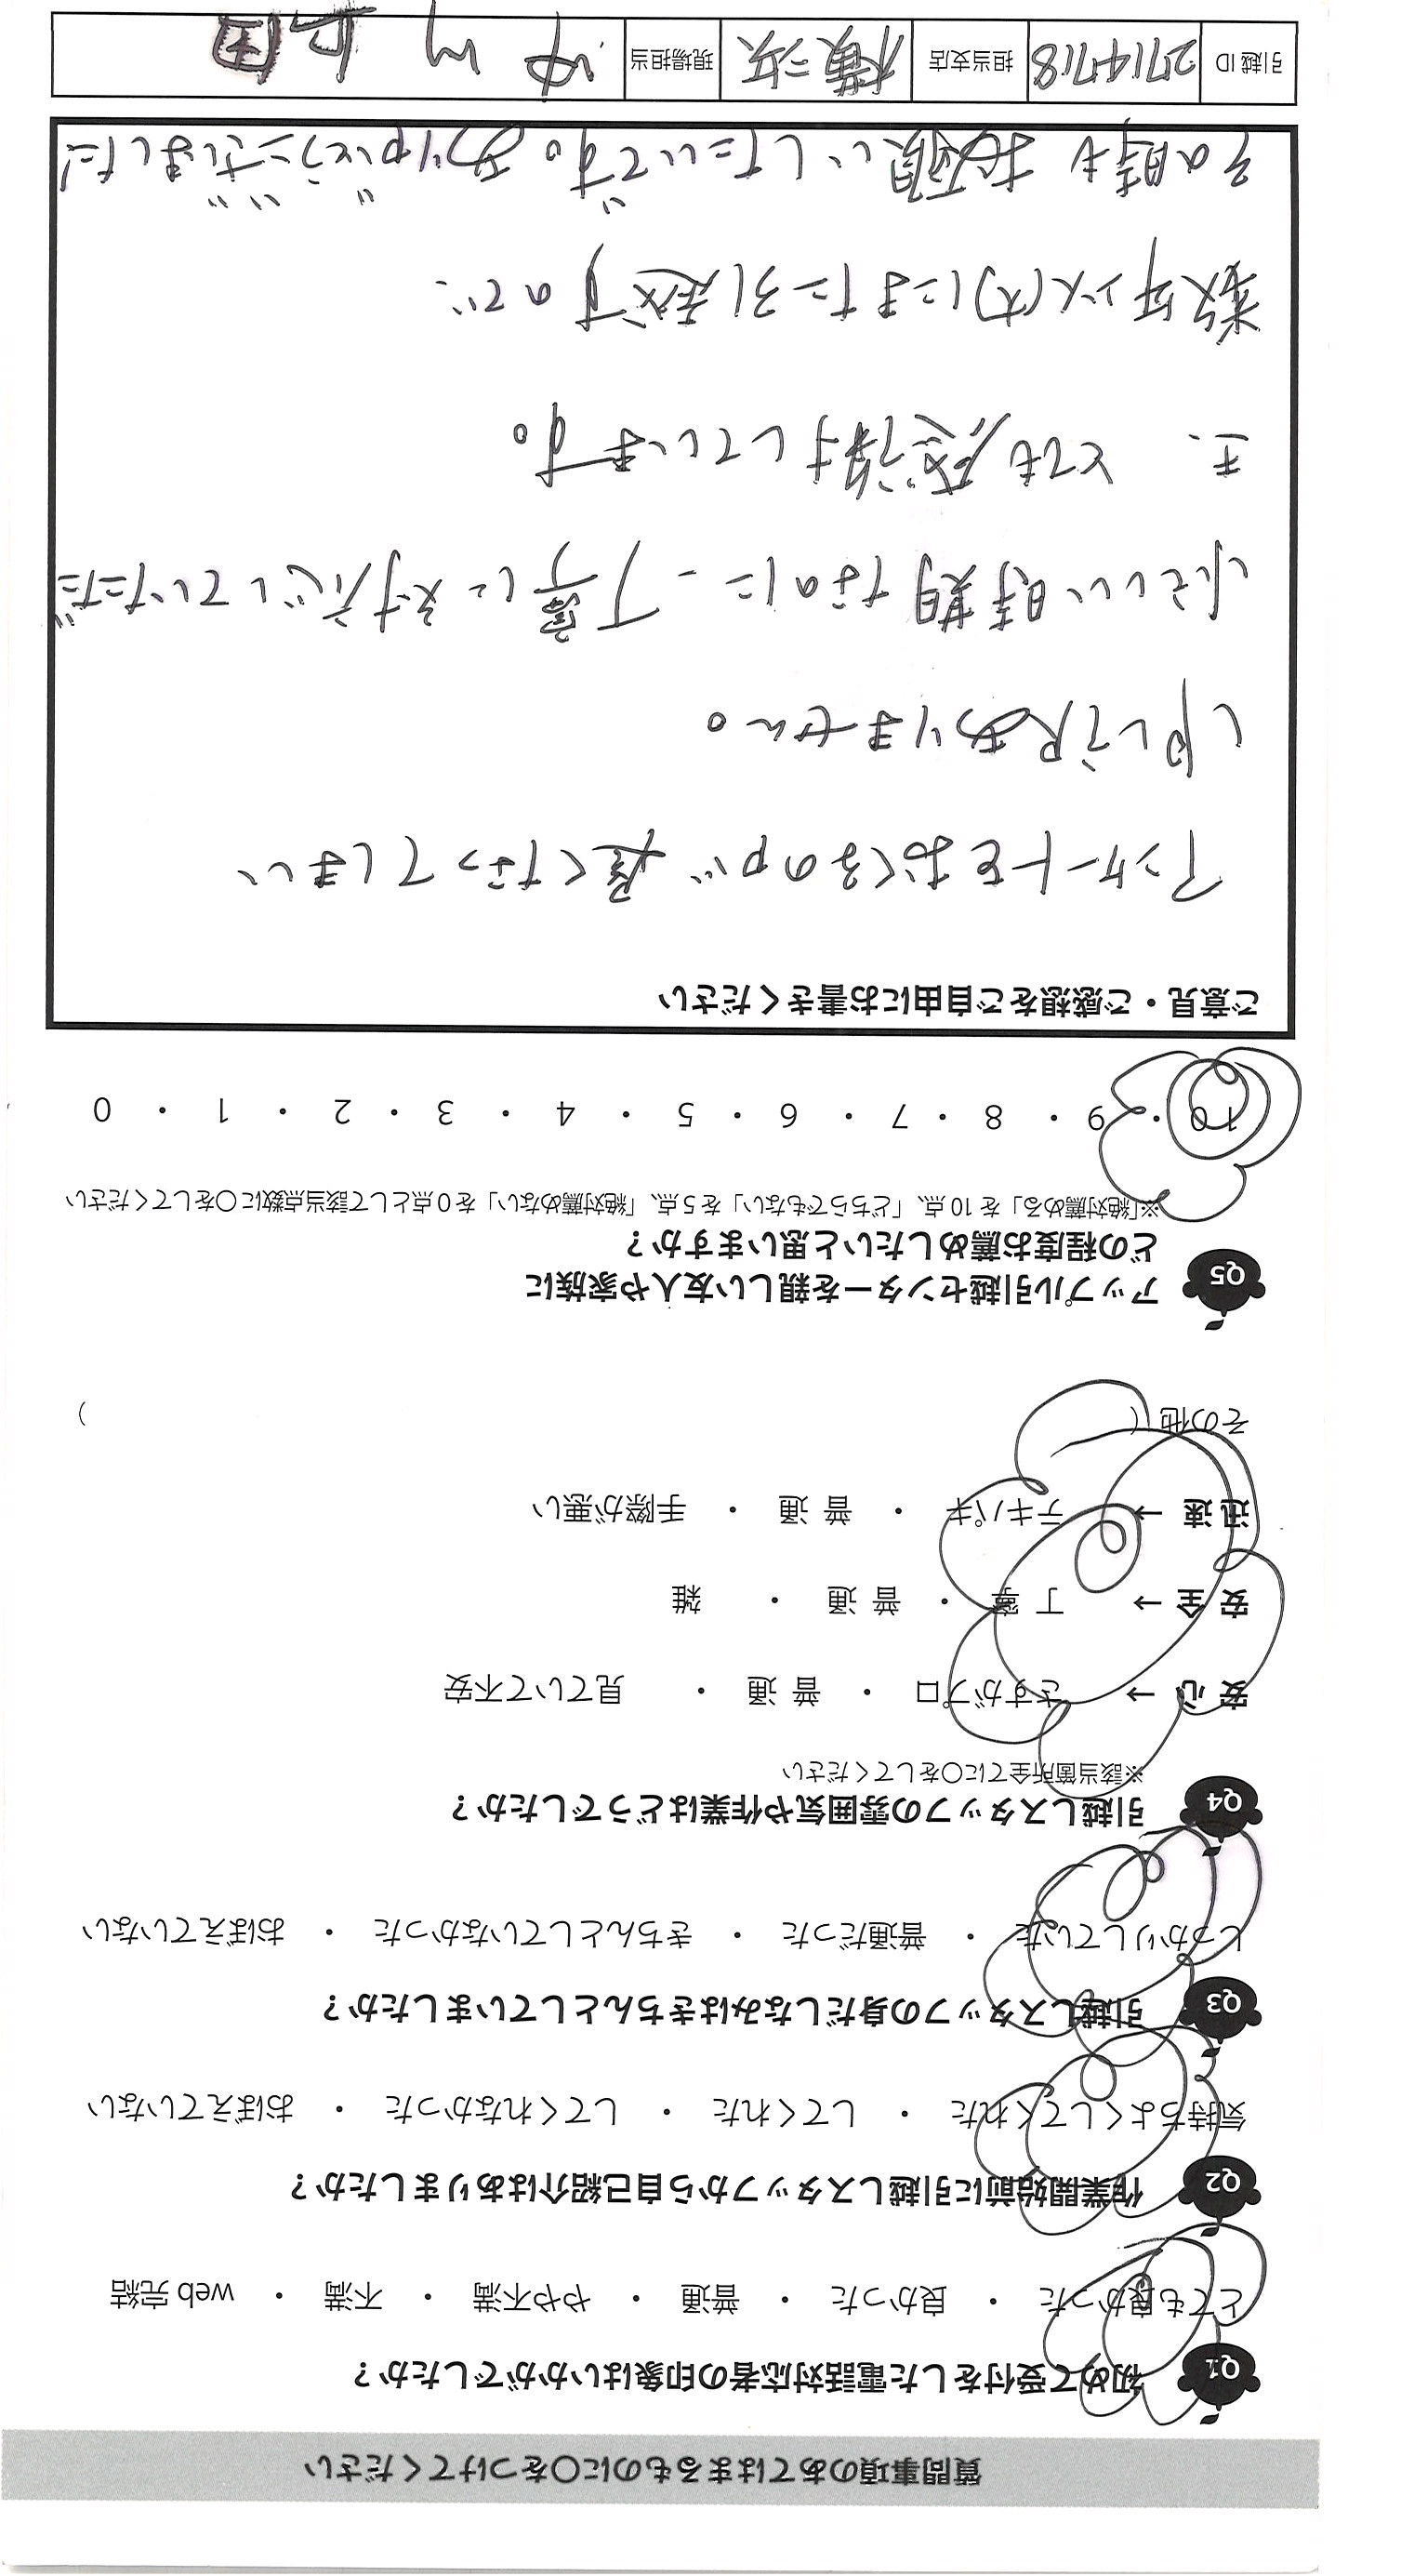 質問事項のあてはまるものに〇をつけてください
Q1 初めて受付をした電話対応者の印象はいかがでしたか？
とても良かった ・ 良かった ・ 普通 ・ やや不満 ・ 不満 ・ web 完結
Q2 作業開始前に引越しスタッフから自己紹介はありましたか？
気持ちよくしてくれた ・ してくれた ・ してくれなかった ・ おぼえていない
Q3 引越しスタッフの身だしなみはきちんとしていましたか？
しっかりしていた ・ 普通だった ・ きちんとしていなかった ・ おぼえていない
Q4 引越しスタッフの雰囲気や作業はどうでしたか？
※該当箇所全てに〇をしてください
安 心 → さすがプロ ・ 普 通 ・ 見ていて不安
安 全 → 丁 寧 ・ 普 通 ・ 雑
迅 速 → テキパキ ・ 普 通 ・ 手際が悪い
その他（ ）
Q5 アップル引越センターを親しい友人や家族に
どの程度お薦めしたいと思いますか？
※「絶対薦める」を 10 点、「どちらでもない」を 5 点、「絶対薦めない」を 0 点として該当点数に〇をしてください
10 ・ 9 ・ 8 ・ 7 ・ 6 ・ 5 ・ 4 ・ 3 ・ 2 ・ 1 ・ 0
ご意見・ご感想をご自由にお書きください
アンケートをおくるのが遅くなってしまい
申し訳ありません。
忙しい時期なのに丁寧に対応していただ
き、とても感謝しています。
数年以内にまた引越すので、
その時もお願いしたいです。ありがとうございました!
引越 ID 2714718 担当支店 横浜 現場担当